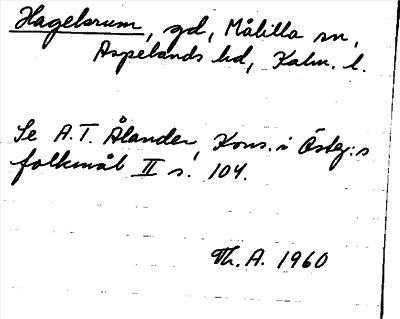 Hagelsrum, gd, Målilla sn,
Aspelands hd, Kalm. l.
Se A. T. Ålander, Kons. i Östg:s
folkmål II s. 104.
Th. A. 1960